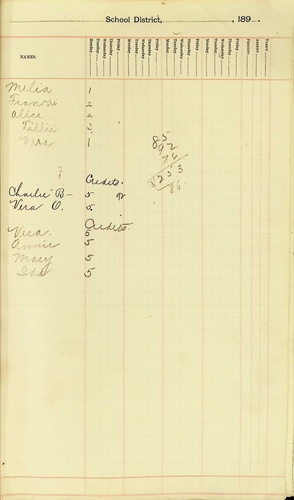 School District, 189
NAMES.
Monday Tuesday Wednesday Thursday Friday Monday Tuesday Wednesday Thursday Friday Monday Tuesday Wednesday Thursday Friday Monday Tuesday Wednesday Thursday Friday PRESENT ABSENT TARDY
Melia 1
Francis 2
Alice 2
Tillie 2
Vera 1 85
92
76
Credits. 253
Charlie B— 5 86
Vera O. 5
Credits.
Vera. 5
Annie 5
Mary 5
Ida 5